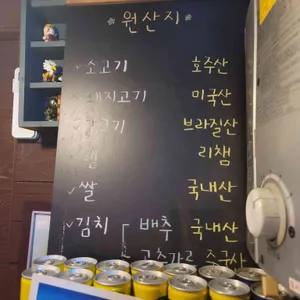 * 원산지 *
✓소고기 호주산
돼지고기 미국산
닭고기 브라질산
햄 리챔
✓쌀 국내산
✓김치 [ 배추 국내산
고추가루 중국산